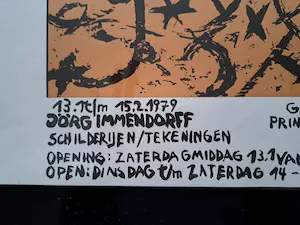 13.1 t/m 15.2.1979
JÖRG IMMENDORFF
SCHILDERIJEN/TEKENINGEN
OPENING: ZATERDAGMIDDAG 13.1 VAN
OPEN: DINSDAG t/m ZATERDAG 14-
G
PRIN